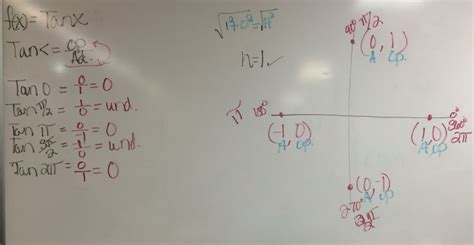 f(x) = Tanx
Tan< = OP / Ad.
Tan 0 = 0/1 = 0
Tan π/2 = 1/0 = und.
Tan π = 0/-1 = 0
Tan 3π/2 = -1/0 = und.
Tan 2π = 0/1 = 0
h=1 ✓
90° π/2
(0, 1)
A op.
π 180°
(-1, 0)
A op.
0°
360°
2π
(1, 0)
A op.
(0, -1)
A op
270°
3π/2